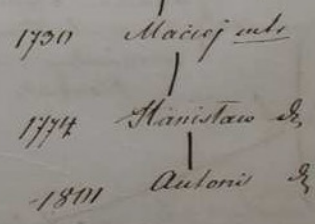 1730 Maciej
1774 Stanisław
1801 Antoni